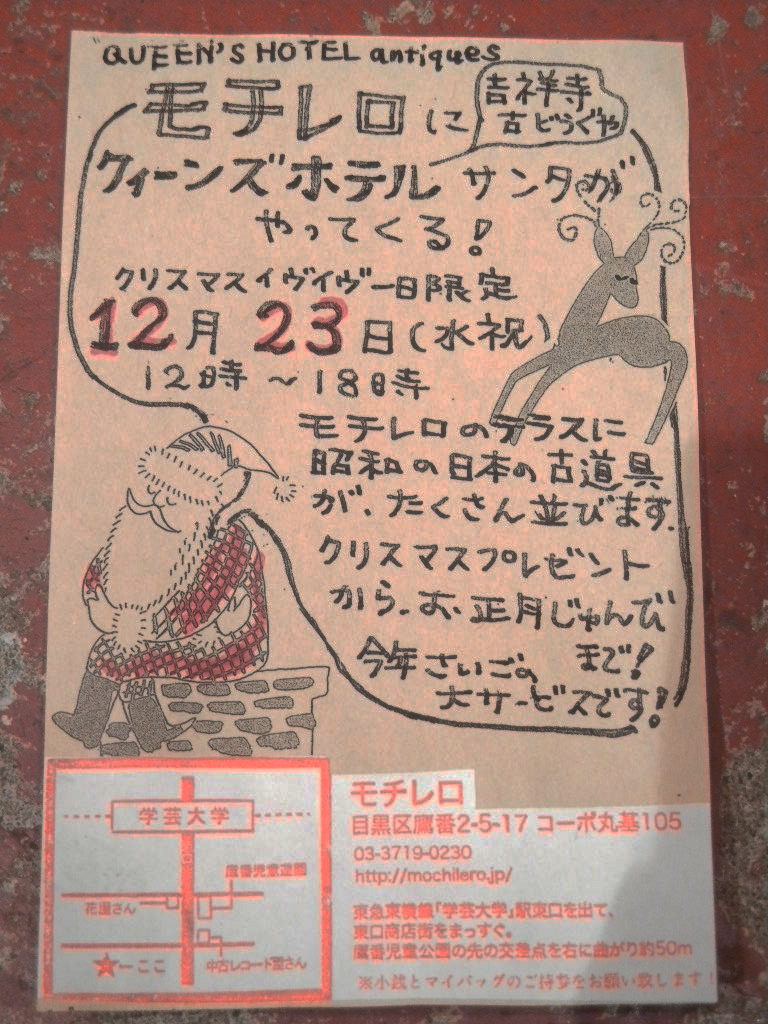 "QUEEN'S HOTEL antiques
モチレロに
吉祥寺
古どうぐや
クィーンズホテル サンタが
やってくる!
クリスマスイヴイヴ一日限定
12月 23日(水祝)
12時〜18時
モチレロのテラスに
昭和の日本の古道具
が、たくさん並びます.
クリスマスプレゼント
から、お正月じゅんび
まで!
今年さいごの
大サービスです!
学芸大学
鷹番児童遊園
花屋さん
★ーここ
中古レコード屋さん
モチレロ
目黒区鷹番2-5-17 コーポ丸基105
03-3719-0230
http://mochilero.jp/
東急東横線「学芸大学」駅東口を出て、
東口商店街をまっすぐ。
鷹番児童公園の先の交差点を右に曲がり約50m
※小銭とマイバッグのご持参をお願い致します!